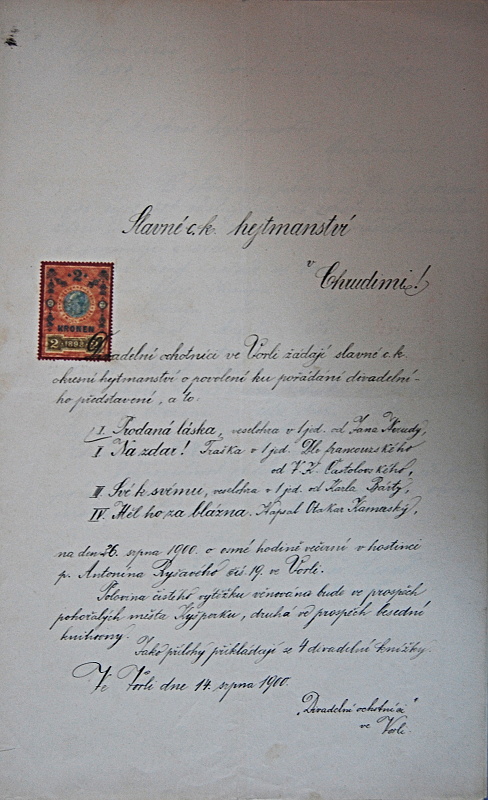 Slavné c.k. hejtmanství
v Chrudimi!
2
KRONEN
2 1898
Divadelní ochotníci ve Vorli žádají slavné c.k.
okresní hejtmanství o povolení ku pořádání divadelní-
ho představení, a to:
I. Prodaná láska, veselohra v 1 jed. od Jana
I Na zdar! Fraška v 1 jed. Dle francouzského
od F. K. Častolovského,
III Své k svému, veselohra v 1 jed. od Karla Bárty,
IV. Měl ho za blázna. Napsal Otakar Kamaský,
na den 26. srpna 1900. o osmé hodině večerní v hostinci
p. Antonína Ryšavého čís 19. ve Vorli.
Polovina čistého výtěžku věnována bude ve prospěch
pohořalých města Kyšperku, druhá ve prospěch besední
knihovny.
Jako přílohy přikládají se 4 divadelní knížky.
Ve Vorli dne 14. srpna 1900.
"Divadelní ochotníci"
ve Vorli.